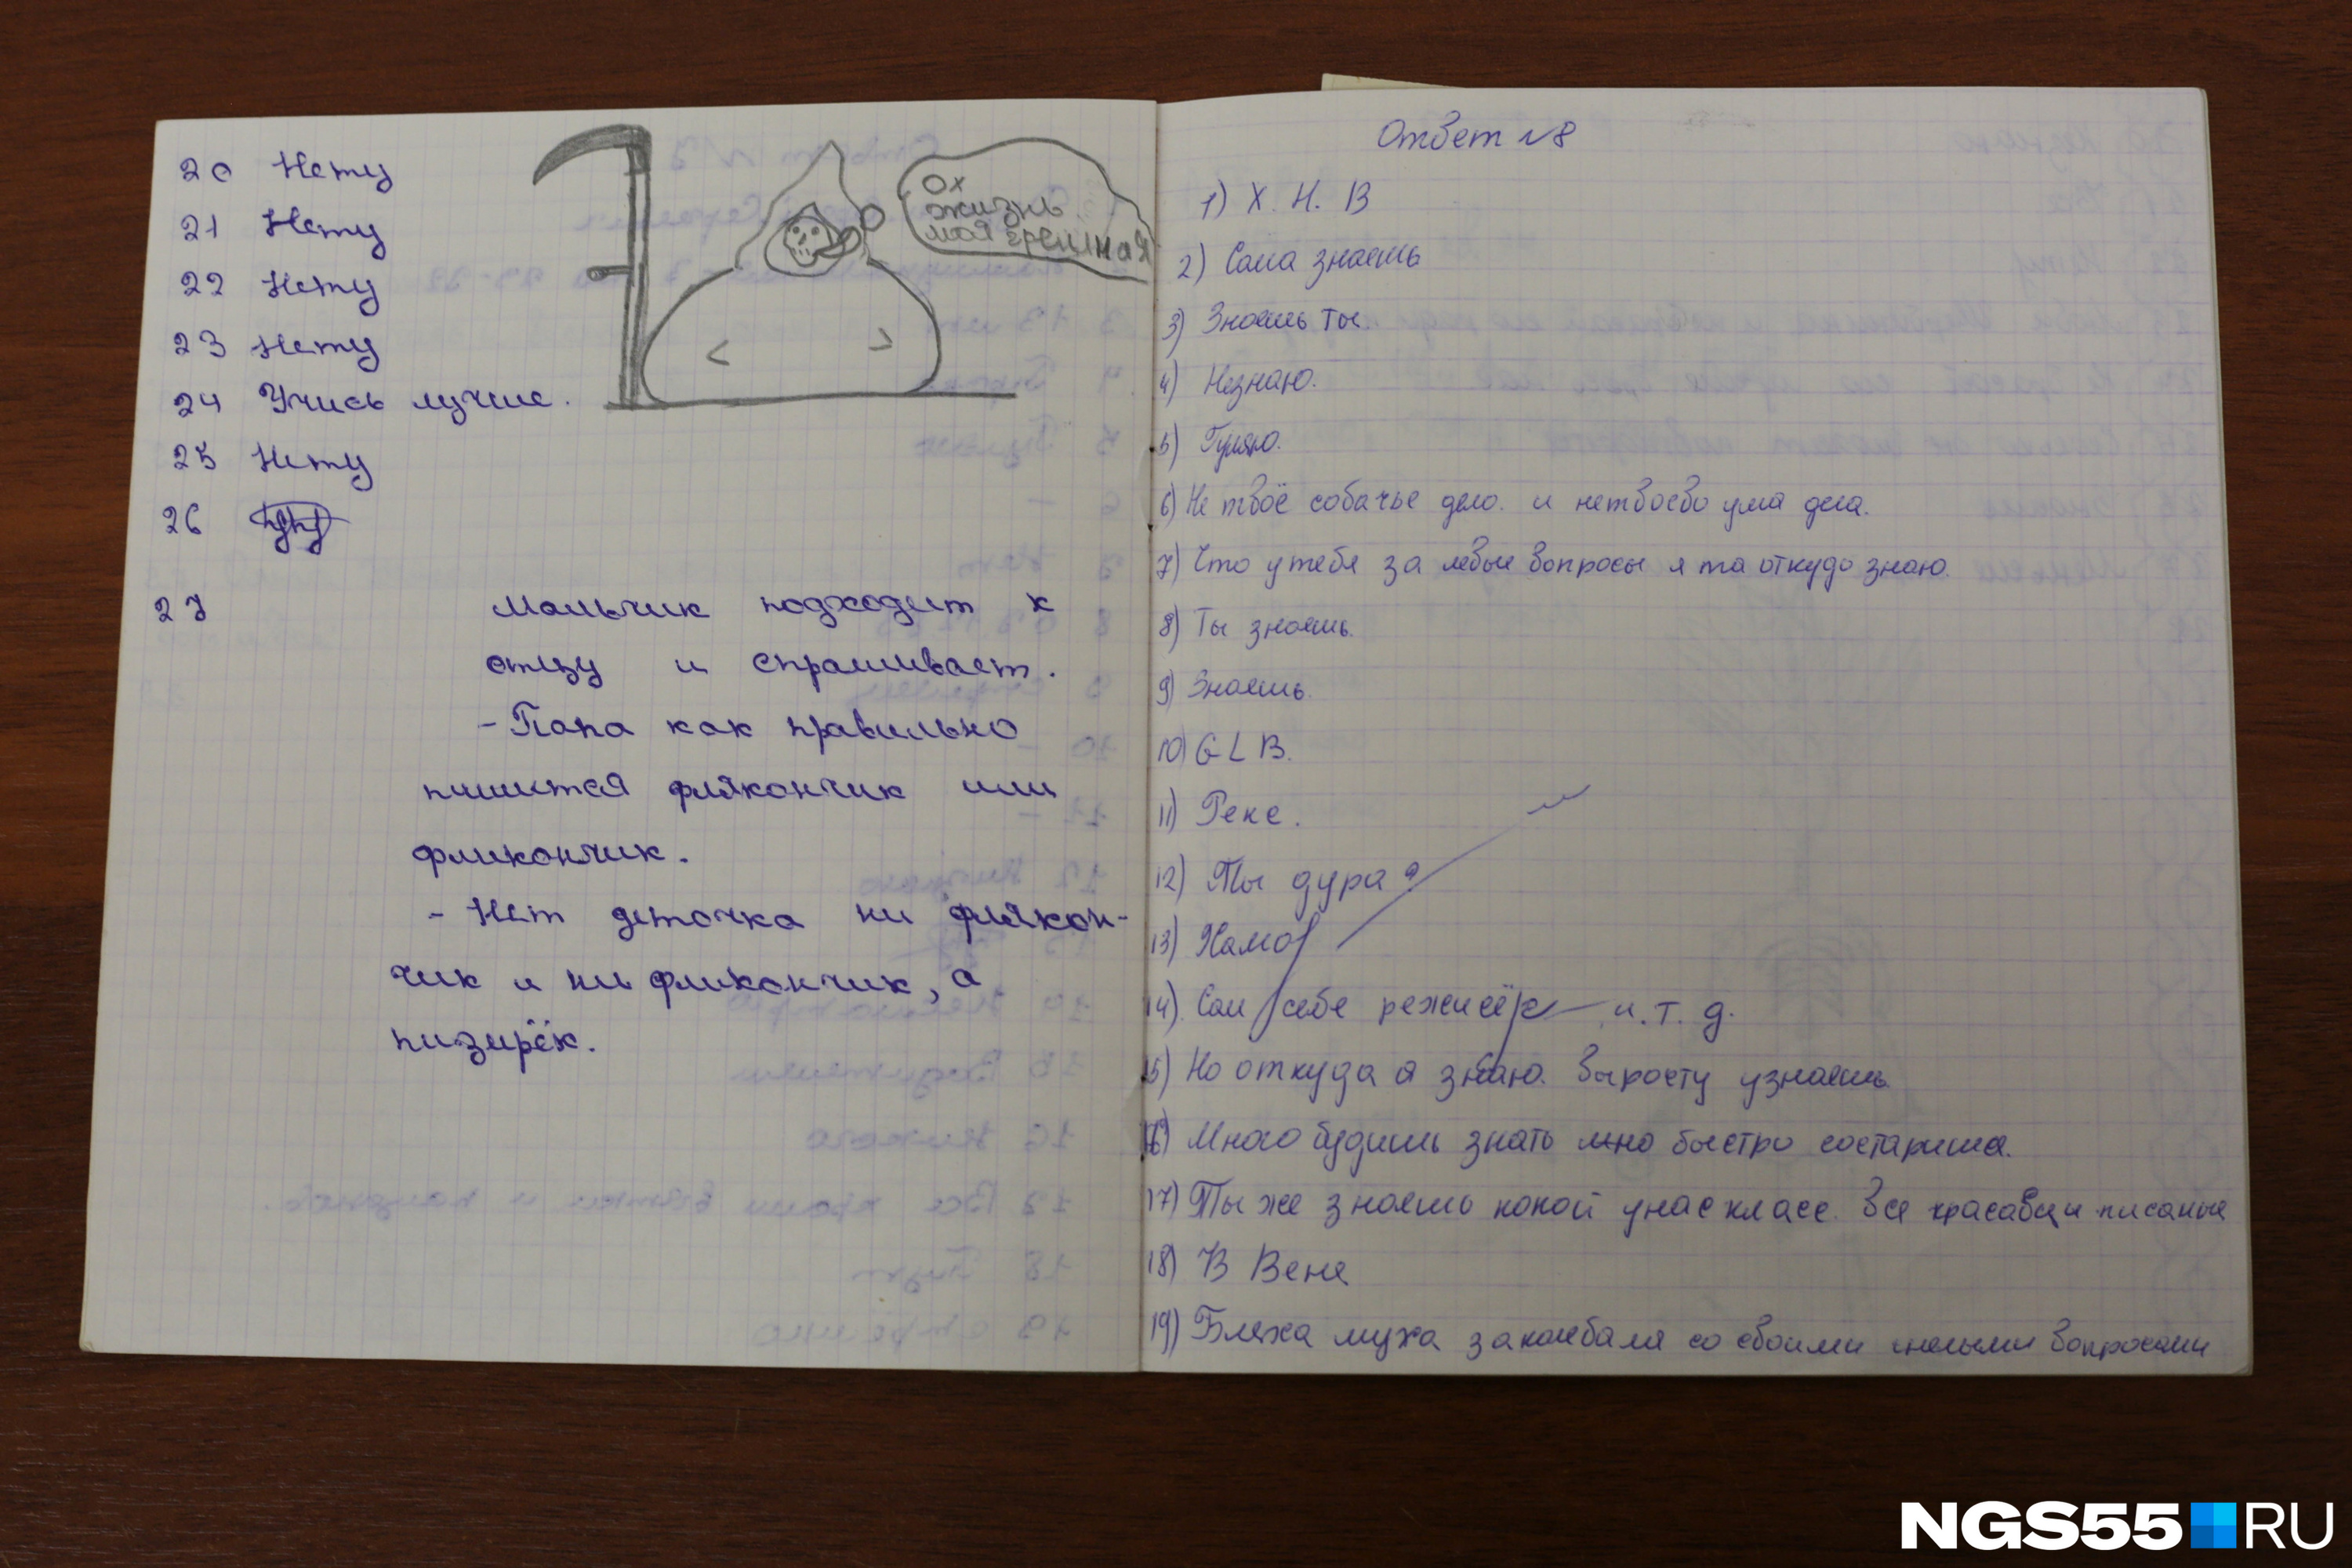 20 Нету
21 Нету
22 Нету
23 Нету
24 Учись лучше.
25 Нету
26
27 Мальчик подходит к
отцу и спрашивает.
- Папа как правильно
пишится флякончик или
фликончик.
- Нет деточка ни флякон-
чик и ни фликончик, а
пизирёк.
ох
жизнь
моя грешная
Ответ №8
1) Х. Н. В
2) Сама знаешь
3) Знаешь ты.
4) Незнаю.
5) Гуляю.
6) Не твоё собачье дело. и нетвоево ума дела.
7) Что у тебя за левые вопросы я та откудо знаю.
8) Ты знаешь.
9) Знаешь.
10) G L B.
11) Рекс.
12) Ты дура?
13) Хамо
14) Сам себе режисёр и. т. д.
15) Но откуда я знаю. Выросту узнаешь.
16) Много будишь знать мно быстро состариша.
17) Ты же знаешь какой унас класс. Все красавци писаные
18) В Вене
19) Бляха муха заколебала со своими вопросами
NGS55 RU